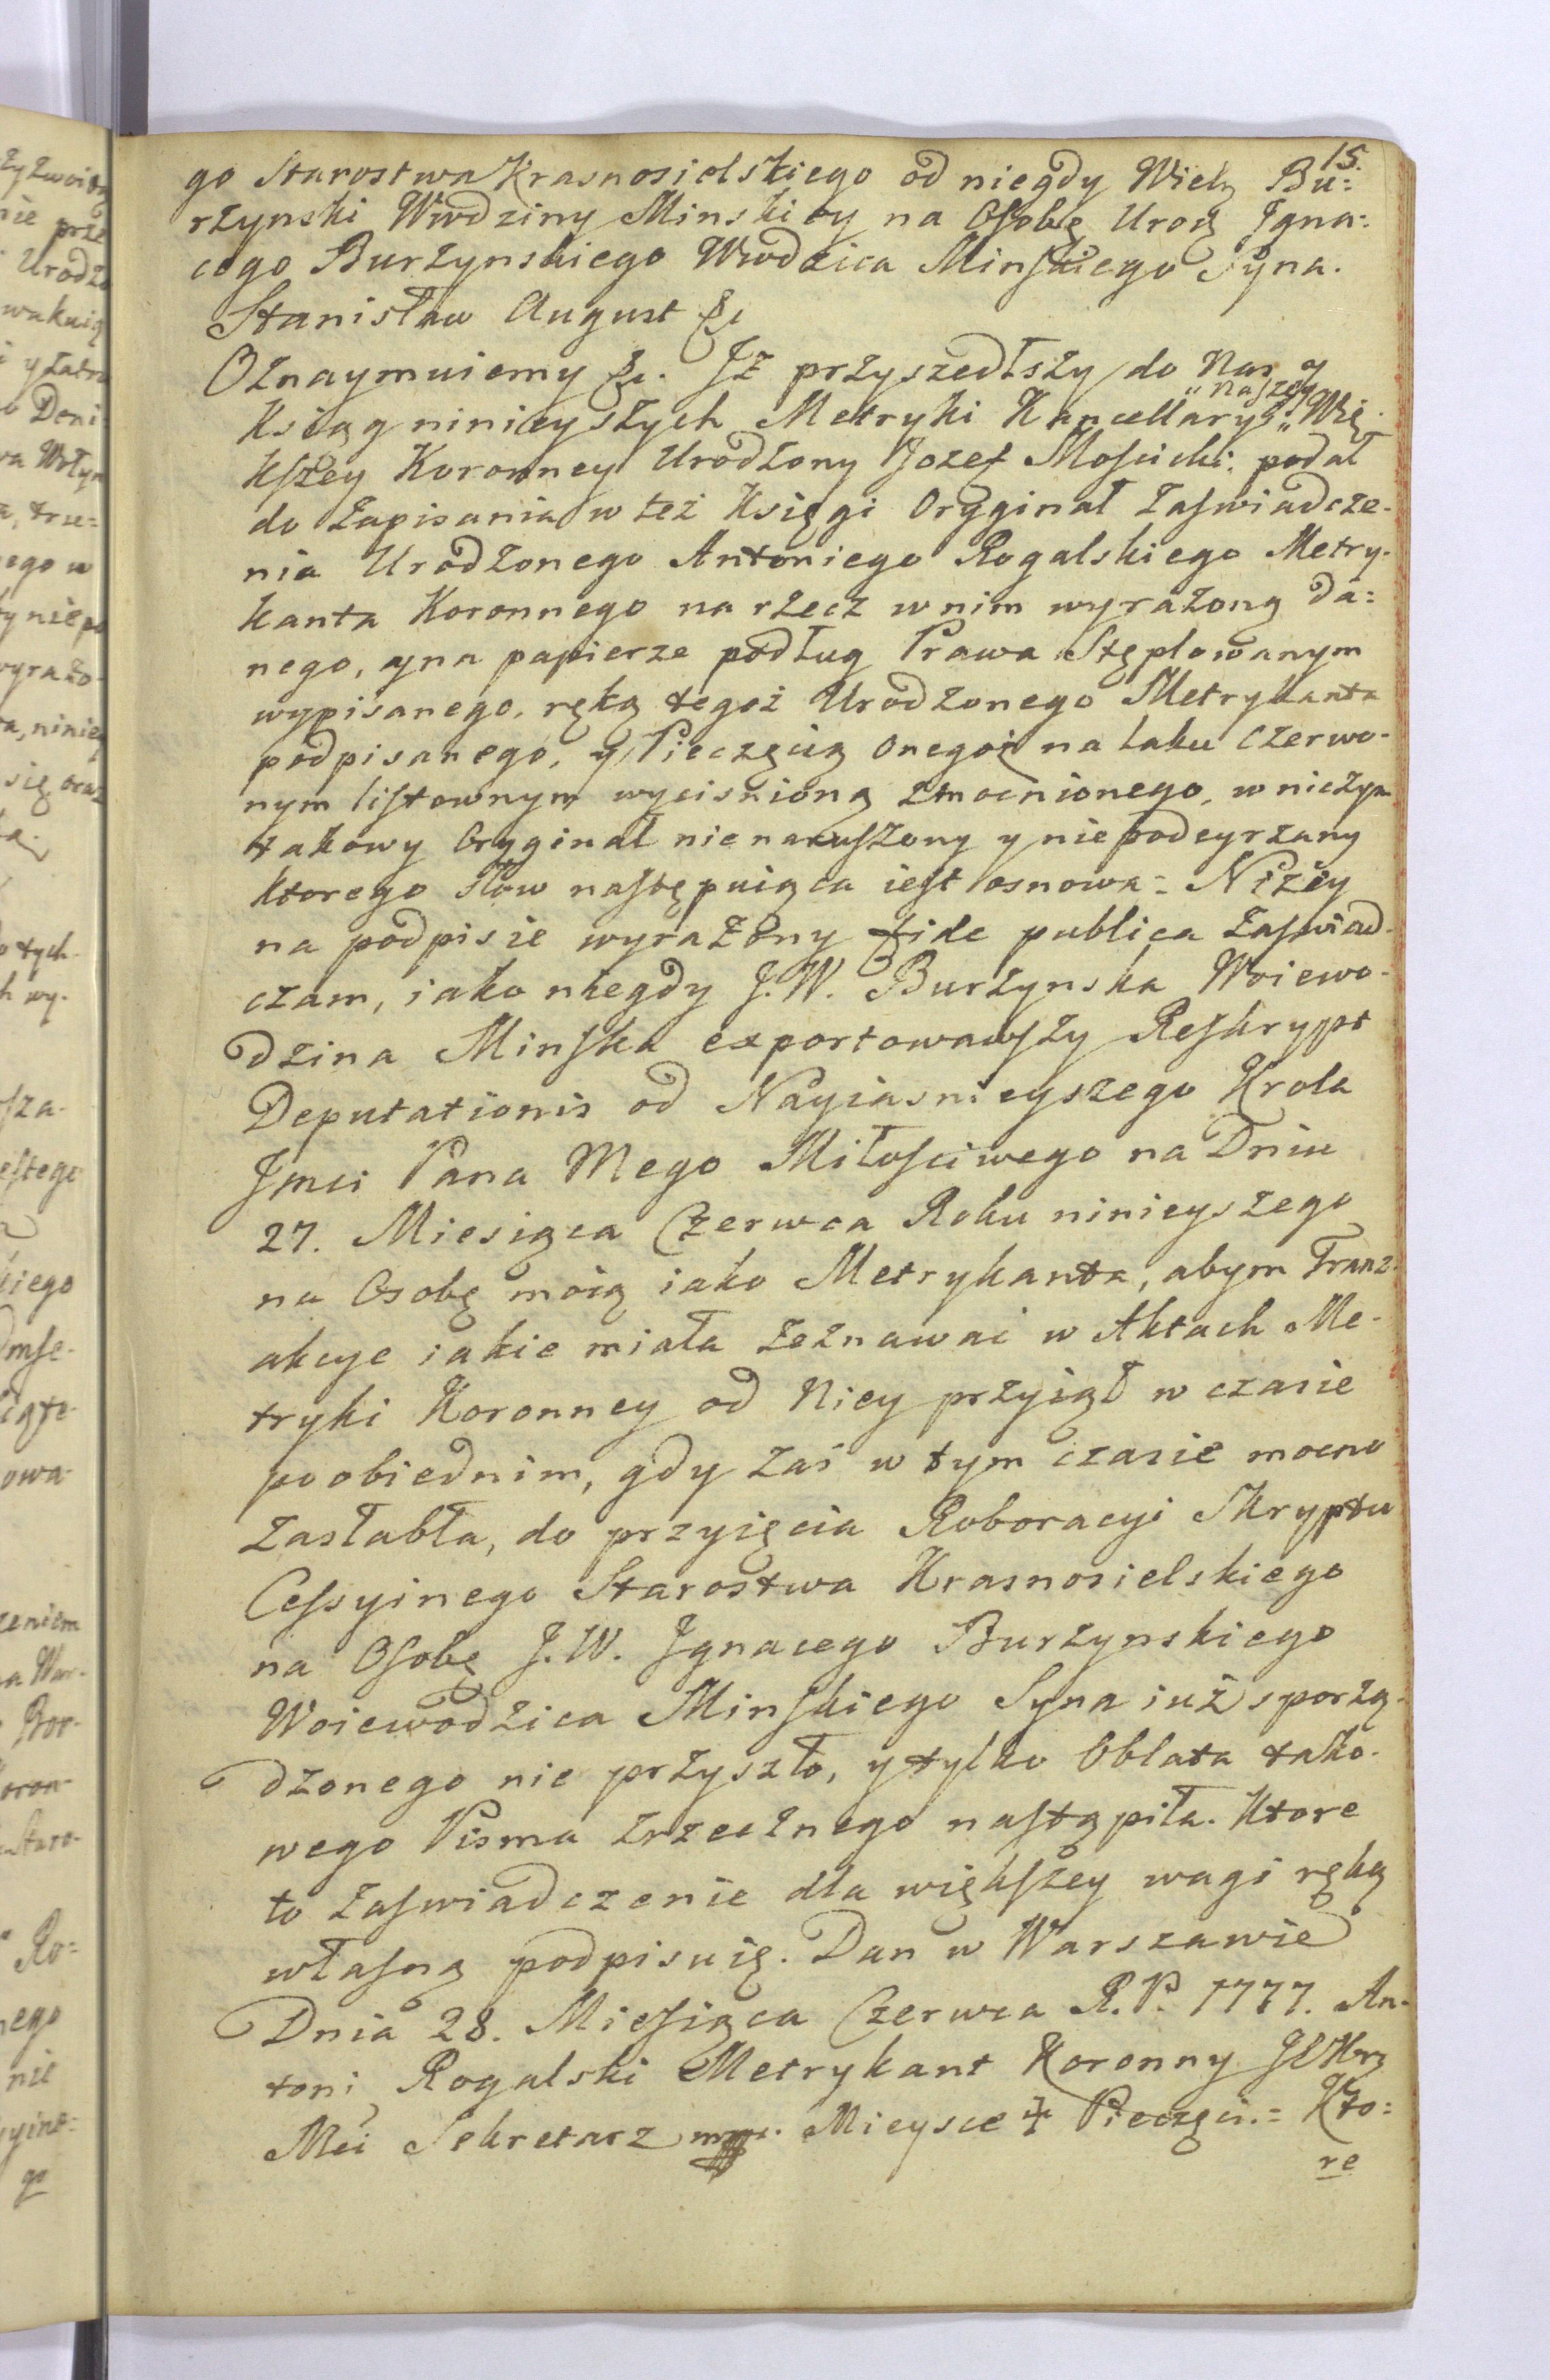 15.
go Starostwa Krasnosielskiego od niegdy Wielą Bu=
rzynski Wwdziny Minskiey na Osobę Urodz Igna=
cego Burzynskiego Wwdzica Minskiego Syna.
Stanisław August &c
Oznaymuiemy &c. Iż przyszedłszy do Nas y
Ksiąg ninieyszych Metryki Kancellaryi „Naszey„ Wię
kszey Koronney Urodzony Jozef Mościcki podał
do Zapisania w też Księgi Oryginał Zaswiadcze-
nia Urodzonego Antoniego Rogalskiego Metry-
kanta Koronnego na rzecz w nim wyrażoną da=
nego, y na papierze podług Prawa Stęplowanym
wypisanego, ręką tegoż Urodzonego Metrykanta
podpisanego, y Pieczęcią onegoż na laku czerwo-
nym listownym wycisnioną zmocnionego, w niczym
takowy Oryginał nienaruszony y niepodeyrzany
ktorego słow następuiąca iest osnowa = Niżey
na podpisie wyrażony fide publica Zaswiad-
czam, iako niegdy J.W. Burzynska Woiewo-
dzina Minska exportowawszy Reskrypt
Deputationis od Nayiasnieyszego Krola
Jmci Pana Mego Miłosciwego na Dniu
27. Miesiąca Czerwca Roku ninieyszego
na Osobę moię iako Metrykanta, abym Tranz-
akcye iakie miała Zeznawać w Aktach Me-
tryki Koronney od Niey przyiął w czasie
poobiednim, gdy zaś w tym czasie mocno
Zasłabła, do przyięcia Roboracyi Skryptu
Cessyinego Starostwa Krasnosielskiego
na Osobę J.W. Ignacego Burzynskiego
Woiewodzica Minskiego Syna iuż sporzą-
dzonego nie przyszło, y tylko Oblata tako-
wego Pisma Zrzecznego nastąpiła. Ktore
to Zaswiadczenie dla większey wagi ręką
własną podpisuię. Dan w Warszawie
Dnia 28. Miesiąca Czerwca R.P. 1777. An-
toni Rogalski Metrykant Koronny JKMci
Mci Sekretarz mpr. Mieysce ✝ Pieczęci. = Kto=
re